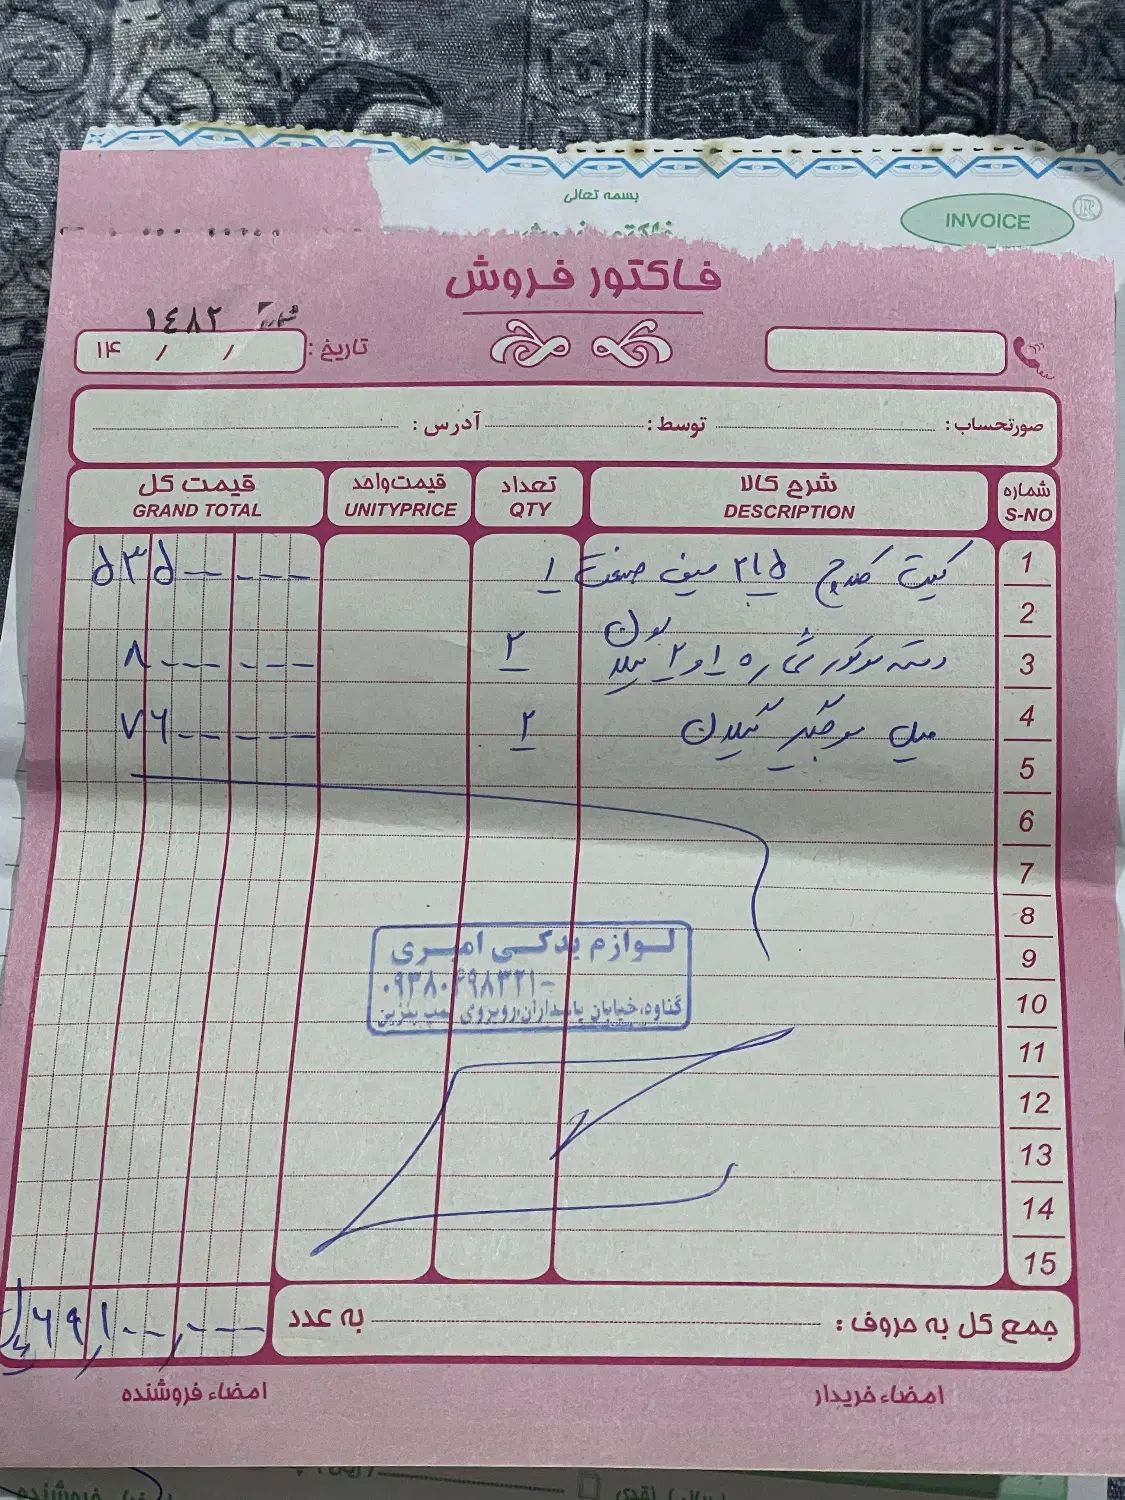 بسمه تعالی
INVOICE ®
فاکتور فروش
شماره ۱٤۸۲
تاریخ : ۱۴ / /
صورتحساب : توسط : آدرس :
شماره شرح کالا تعداد قیمت واحد قیمت کل
S-NO DESCRIPTION QTY UNITYPRICE GRAND TOTAL
1 کیت کلاچ ۲۱۵ سیف صنعت ۱ ۵۳۵-----
2
3 دسته موتور شماره ۱ و ۲ ۲ ۸------
4 میل موجگیر گیلان ۲ ۷۶-----
5
6
7
8
9
10
11
12
13
14
15
لوازم یدکی امیری
۰۹۳۸۰۶۹۸۳۲۱-
گناوه، خیابان پاسداران، روبروی پمپ بنزین
جمع کل به حروف : به عدد ۶۹,۱--,---
امضاء خریدار امضاء فروشنده